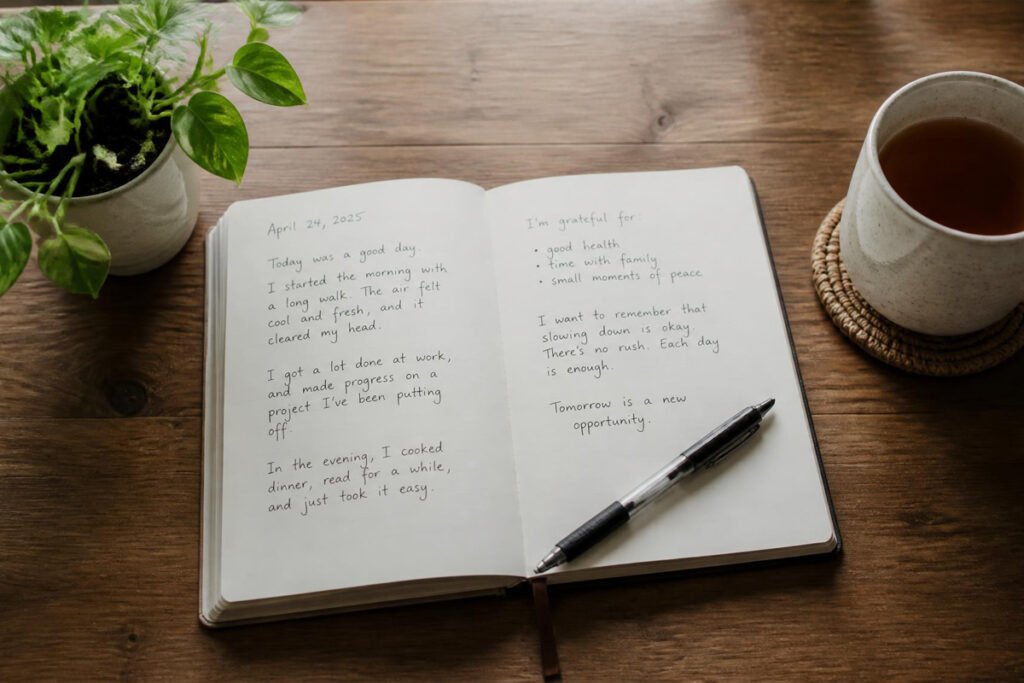 April 24, 2025
Today was a good day.
I started the morning with
a long walk. The air felt
cool and fresh, and it
cleared my head.
I got a lot done at work,
and made progress on a
project I've been putting
off.
In the evening, I cooked
dinner, read for a while,
and just took it easy.
I'm grateful for:
• good health
• time with family
• small moments of peace
I want to remember that
slowing down is okay.
There's no rush. Each day
is enough.
Tomorrow is a new
opportunity.